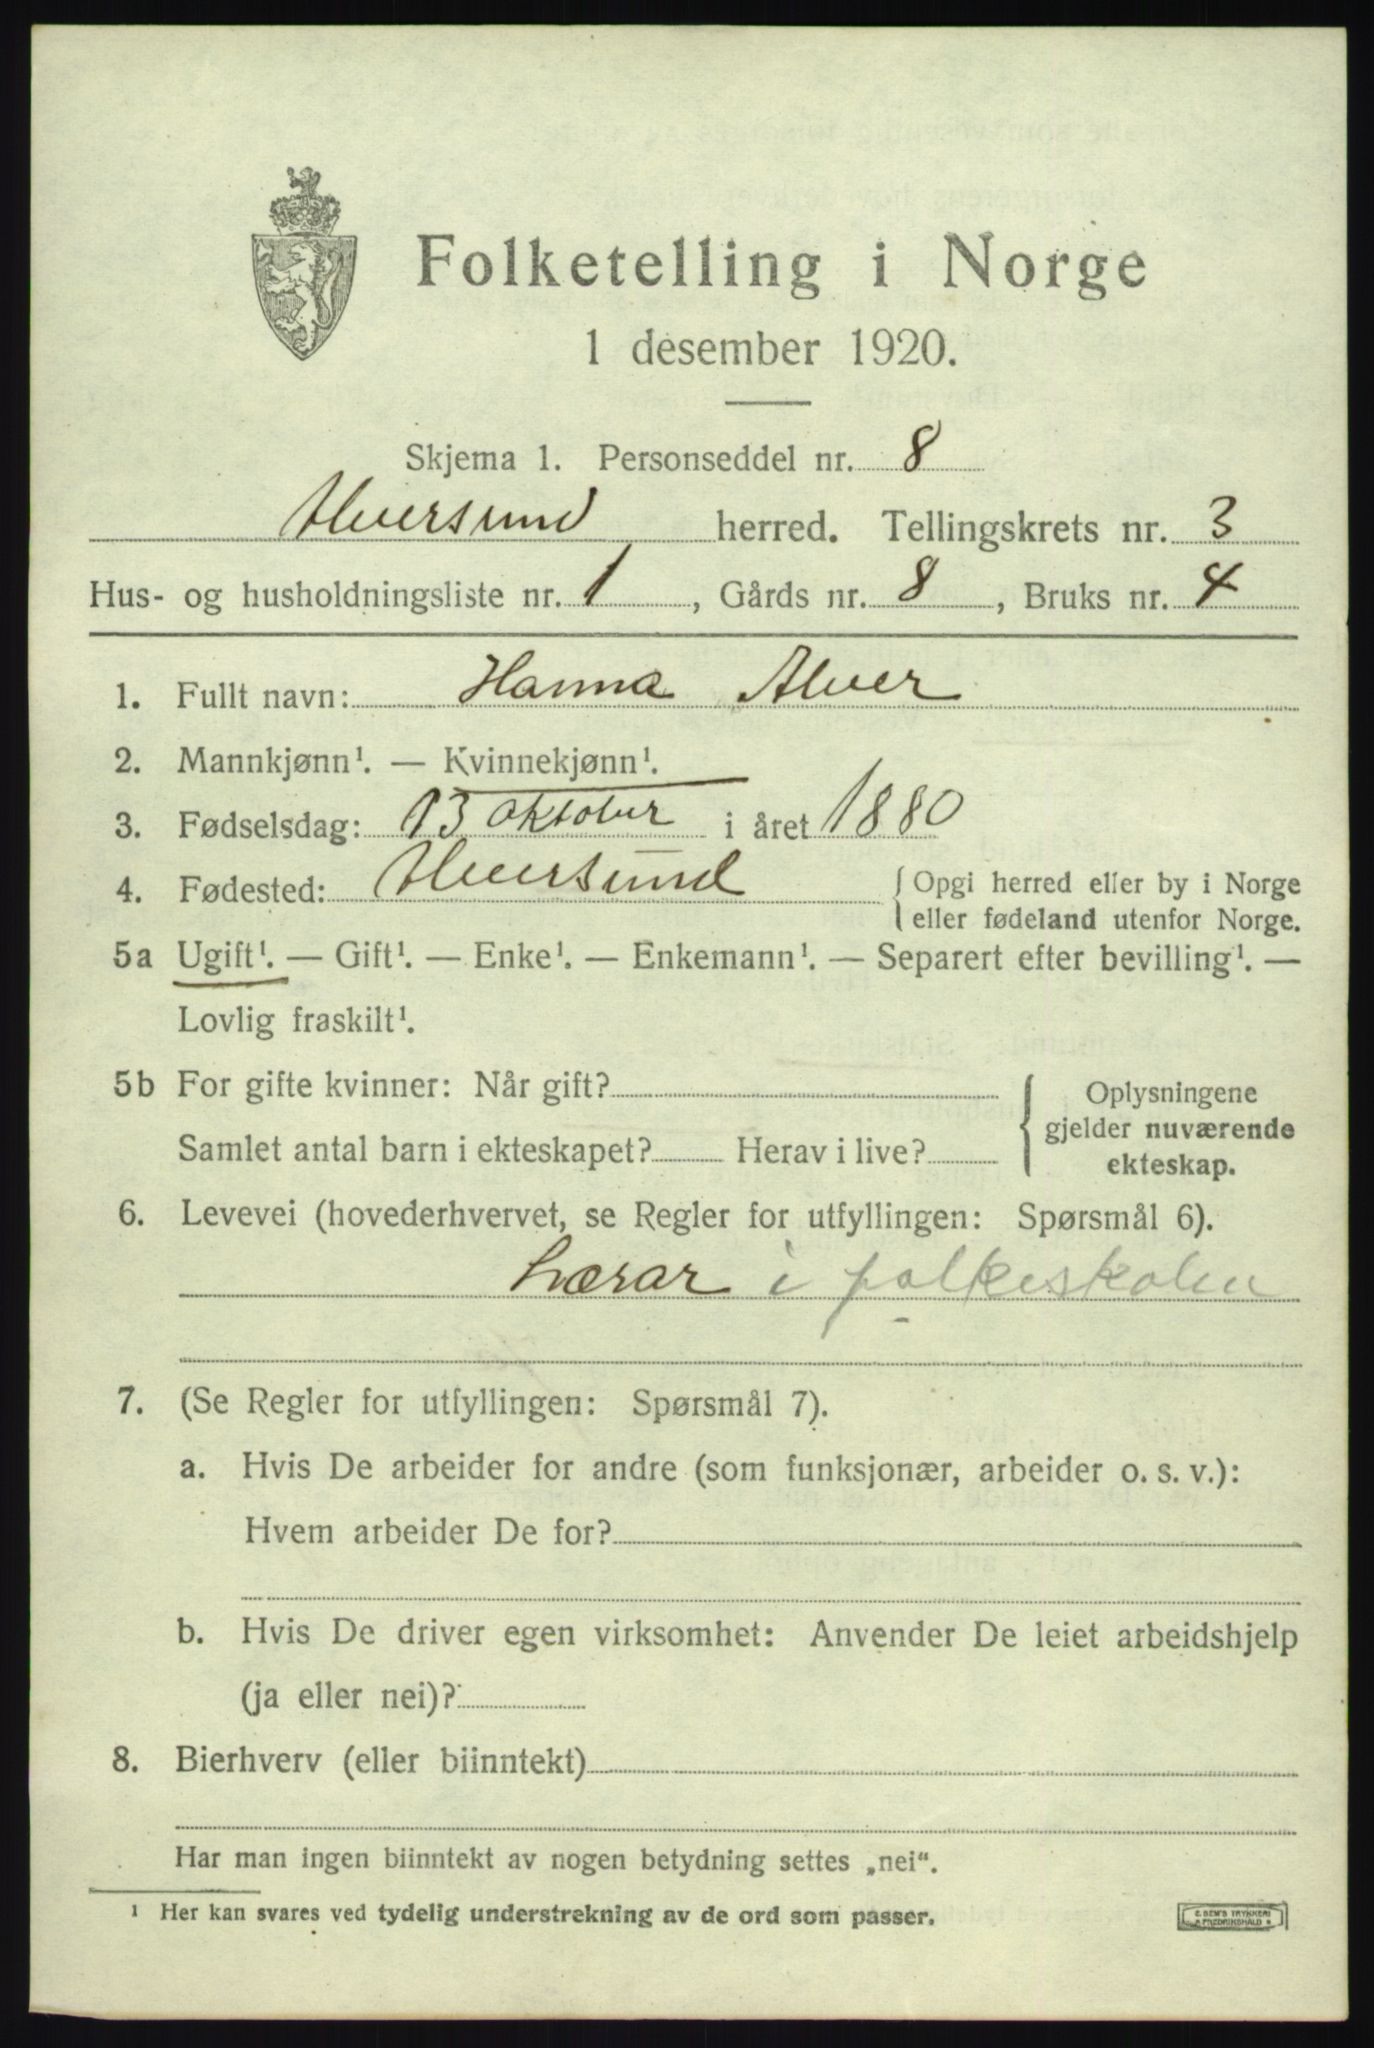 Folketelling i Norge
1 desember 1920.
Skjema 1. Personseddel nr. 8
Alversund herred. Tellingskrets nr. 3
Hus- og husholdningsliste nr. 1, Gårds nr. 8, Bruks nr. 4
1. Fullt navn: Hanna Alver
2. Mannkjønn¹. — Kvinnekjønn¹.
3. Fødselsdag: 13 oktober i året 1880
4. Fødested: Alversund { Opgi herred eller by i Norge
eller fødeland utenfor Norge.
5a Ugift¹. — Gift¹. — Enke¹. — Enkemann¹. — Separert efter bevilling¹. —
Lovlig fraskilt¹.
5b For gifte kvinner: Når gift? { Oplysningene
gjelder nuværende
Samlet antal barn i ekteskapet? Herav i live? ekteskap.
6. Levevei (hovederhvervet, se Regler for utfyllingen: Spørsmål 6).
Lærar i folkeskolen
7. (Se Regler for utfyllingen: Spørsmål 7).
a. Hvis De arbeider for andre (som funksjonær, arbeider o. s. v.):
Hvem arbeider De for?
b. Hvis De driver egen virksomhet: Anvender De leiet arbeidshjelp
(ja eller nei)?
8. Bierhverv (eller biinntekt)
Har man ingen biinntekt av nogen betydning settes „nei“.
¹ Her kan svares ved tydelig understrekning av de ord som passer.
E. SEM'S TRYKKERI
FREDRIKSHALD